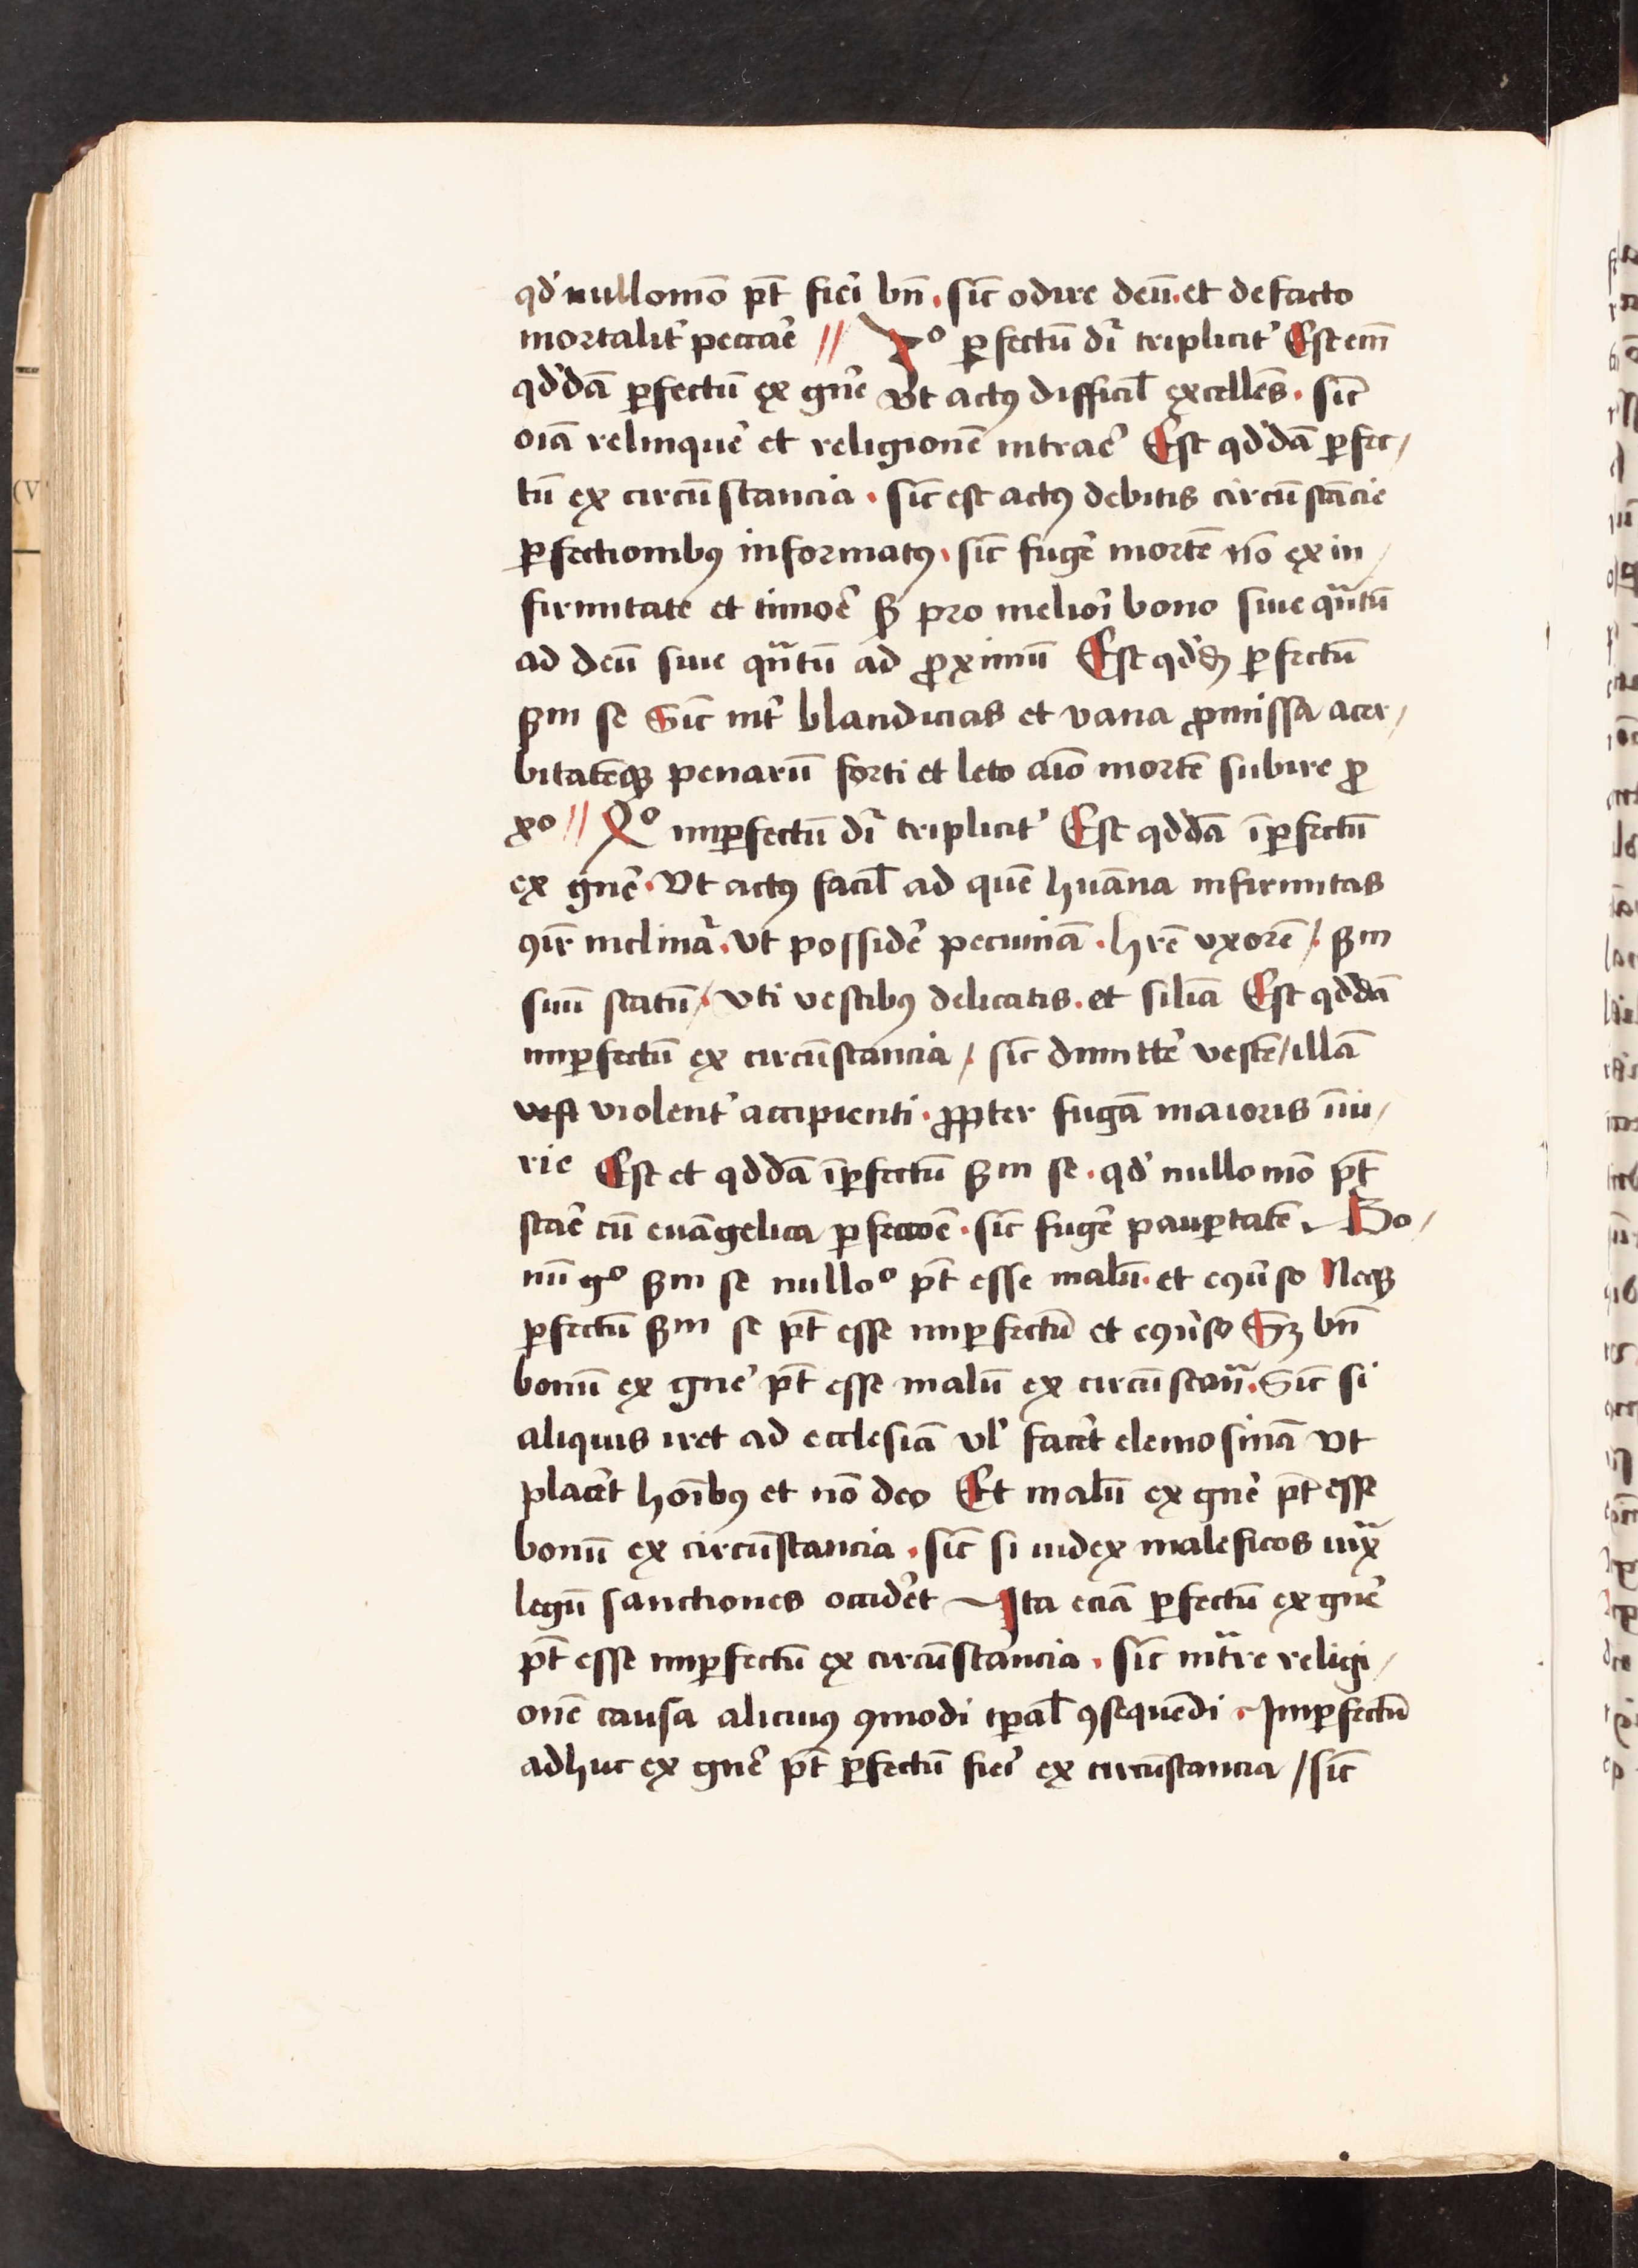 qd' nullomō pt̄ fieri bn̄. sic̄ odire deū. et de facto
mortalit' peccar̄e // 3º ꝑfectū dr̄ triplicit' Est em̄
qd'dā ꝑfectū ex gn̄e Vt actꝰ difficil̄ excellēs. sic̄
oīa relinquēr et religionē intrar̄e Est qd'dā ꝑfec/
tū ex circūstancia. sic̄ est actꝰ debitis circūstācie
ꝑfectionibꝰ informatꝰ. sic̄ fuger̄e mortē nō ex in/
firmitate et timor̄e sꝫ pro meliori bono siue qᷓntū
ad deū siue qᷓntū ad ꝓximū Est qd'dā ꝑfectū
ẜm se Sic̄ int' blandicias et vana ꝓmissa acer/
bitatēqꝫ penarū forti et leto aīo mortē subire ꝓ
xº // 4º imꝑfectū dr̄ triplicit' Est qd'dā īꝑfectū
ex gn̄e. Vt actꝰ facil̄ ad quē huāna infirmitas
ꝯir̄ inclinat'. vt possider̄e pecuniā. hr̄e vxorē /. ẜm
suū statū /. vti vestibꝰ delicatis. et silīa Est qd'dā
imꝑfectū ex circūstancia /. sic̄ dimitter̄e vestē / illā
violent' accipienti. ꝓpter fugā maioris iniu/
rie Est et qd'dā īꝑfectū ẜm se. qd' nullomō pt̄
star̄e cū euāgelica ꝑfectōe. sic̄ fuger̄e pauꝑtatē. Bo/
nū gº ẜm se nulloº pt̄ esse malū. et eꝯuerso Neqꝫ
ꝑfectū ẜm se pt̄ esse imꝑfectū et eꝯuerso Sꝫ bn̄
bonū ex gn̄e pt̄ esse malū ex circūstanᷓ. Sic̄ si
aliquis iret ad ecclesiā vl' facer̄et elemosinā Vt
placer̄et hoībꝰ et nō deo Et malū ex gn̄e pt̄ esse
bonū ex circūstancia. sic̄ si iudex maleficos iuxᷓ
legū sanctiones occider̄et Ita eciā ꝑfectū ex gn̄e
pt̄ esse imꝑfectū ex circūstancia. sic̄ intᷓre religi/
onē causa alicuiꝰ ꝯmodi tꝑal̄ ꝯsequēdi. Imꝑfectū
adhuc ex gn̄e pt̄ ꝑfectū fieri ex circūstancia / sic̄